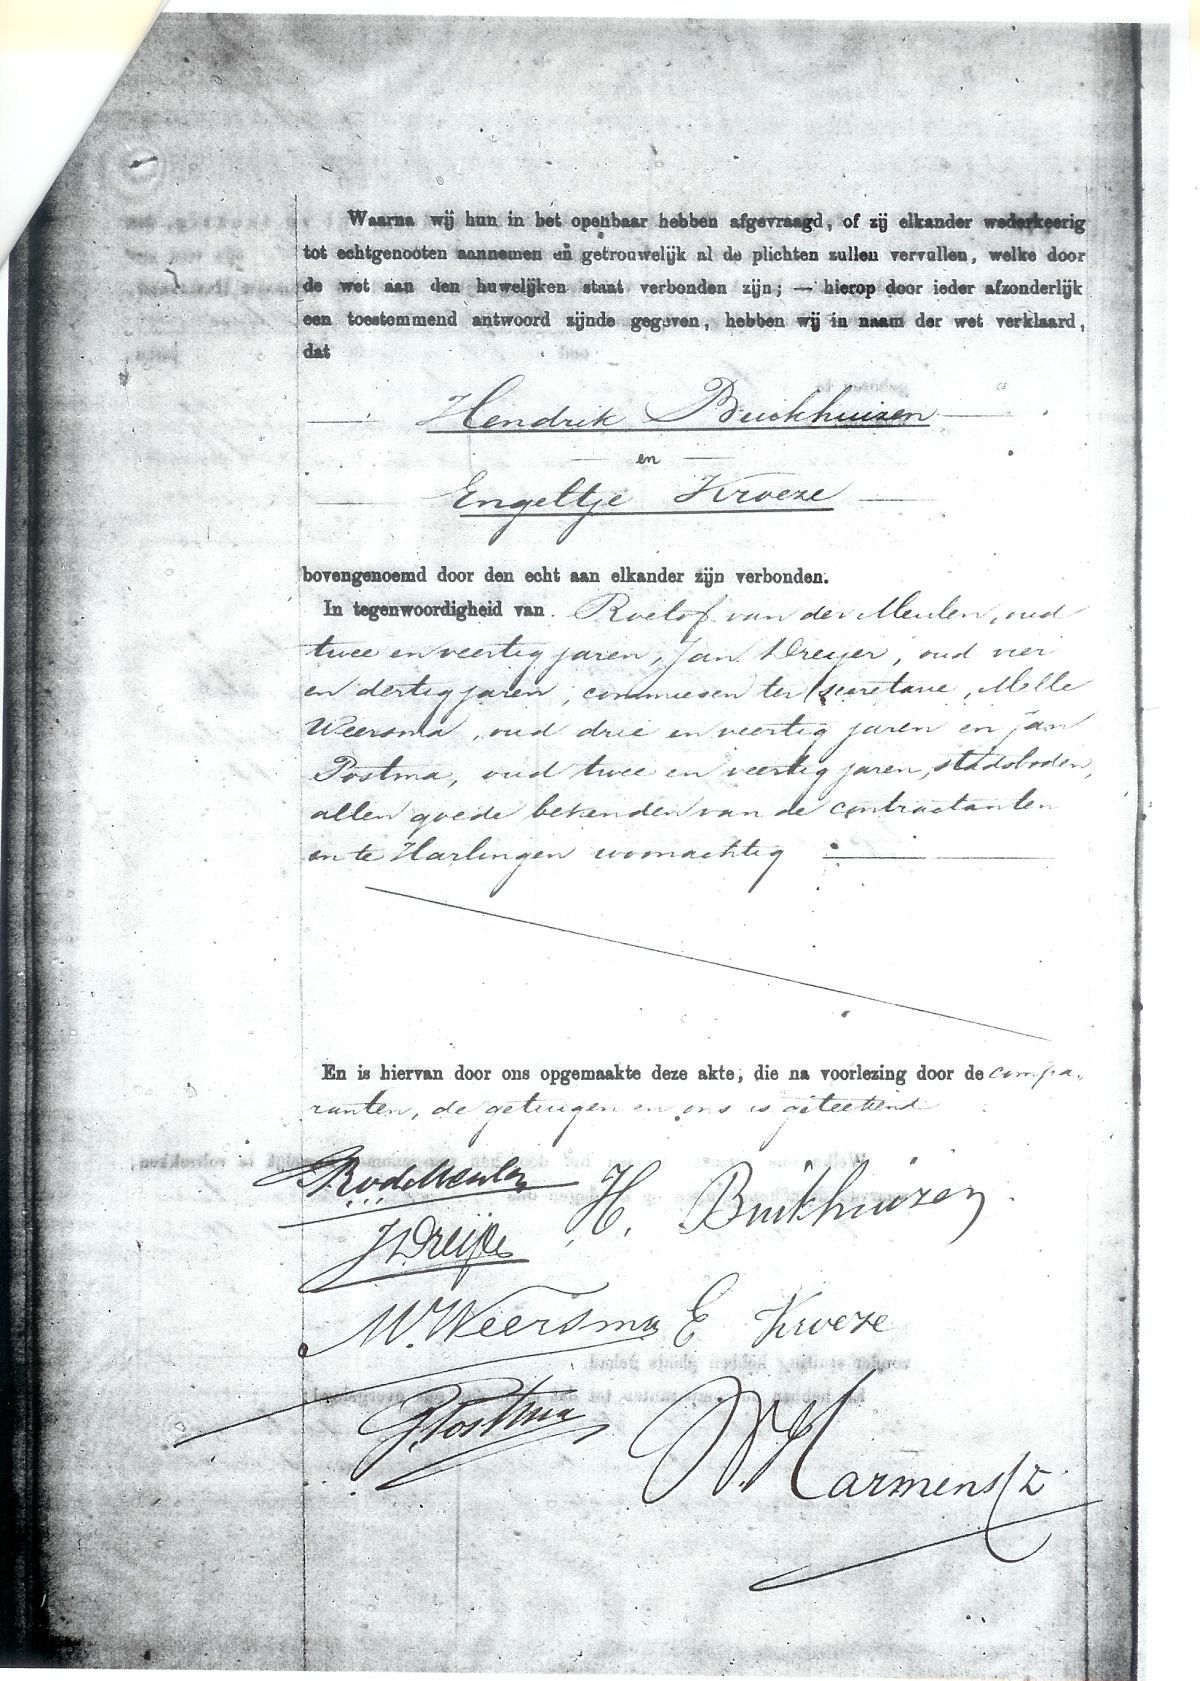 Waarna wij hun in het openbaar hebben afgevraagd, of zij elkander wederkeerig
tot echtgenooten aannemen en getrouwelijk al de plichten zullen vervullen, welke door
de wet aan den huwelijken staat verbonden zijn; — hierop door ieder afzonderlijk
een toestemmend antwoord zijnde gegeven, hebben wij in naam der wet verklaard,
dat
Hendrik Buikhuizen
en
Engeltje Kroeze
bovengenoemd door den echt aan elkander zijn verbonden.
In tegenwoordigheid van Roelof van der Meulen, oud
twee en veertig jaren, Jan Dreijer, oud vier
en dertig jaren, commiesen ter secretarie, Melle
Weersma, oud drie en veertig jaren en Jan
Postma, oud twee en veertig jaren, stadsboden,
allen goede bekenden van de contractanten
en te Harlingen woonachtig
En is hiervan door ons opgemaakte deze akte, die na voorlezing door de compa-
ranten, de getuigen en ons is geteekend
RvdMeulen H. Buikhuizen
J Dreijer
M. Weersma E Kroeze
J. Postma
Harmensz